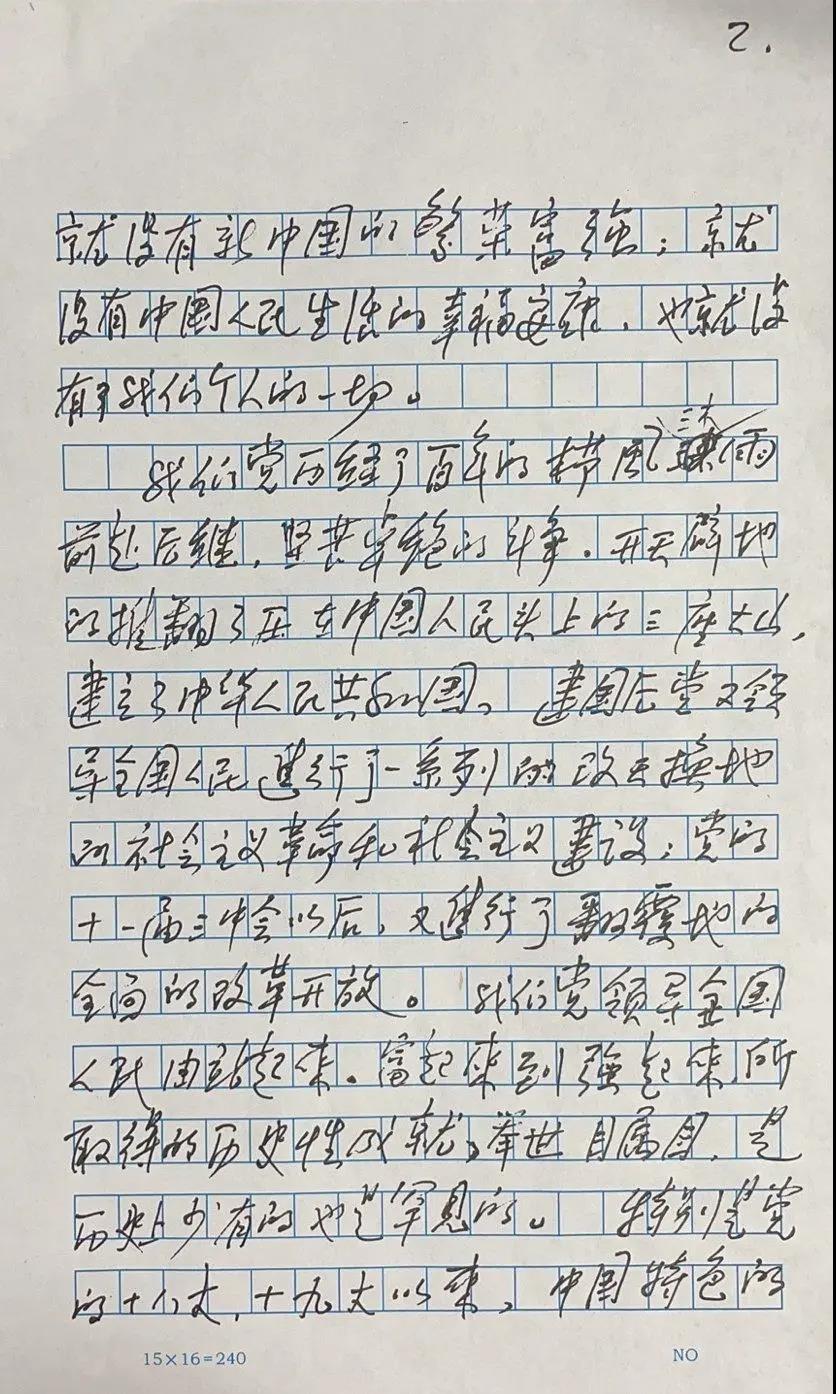 2.
就没有新中国的繁荣富强；就
没有中国人民生活的幸福安康，也就没
有了我们个人的一切。
我们党历经了百年的栉风沐雨
前赴后继，坚苦卓绝的斗争，开天辟地
的推翻了压在中国人民头上的三座大山，
建立了中华人民共和国。建国后党又领
导全国人民进行了一系列的改天换地
的社会主义革命和社会主义建设；党的
十一届三中会以后，又进行了翻天覆地的
全面的改革开放。我们党领导全国
人民由站起来、富起来到强起来，所
取得的历史性成就，举世目属目，是
历史上少有的也是罕见的。特别是党
的十八大、十九大以来，中国特色的
15×16=240
NO